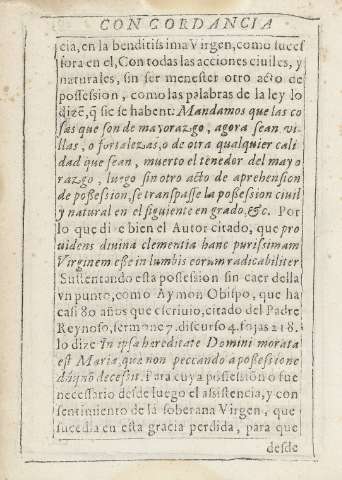 CONCORDANCIA
cia, en la benditissima Virgen, como suces
sora en el, Con todas las acciones civiles, y
naturales, sin ser menester otro acto de
possession, como las palabras de la ley lo
dizẽ, q̃ sic se habent: Mandamos que las co
sas que son de mayorazgo, agora sean vi-
llas, o fortalezas, o de otra qualquier cali
dad que sean, muerto el tenedor del mayo
razgo, luego sin otro acto de aprehension
de possession, se transpasse la possession civil
y natural en el siguiente en grado, &c. Por
lo que dize bien el Autor citado, que pro
uidens divina clementia hanc purissimam
Virginem esse in lumbis eorum radicabiliter
Sustentando esta possession sin caer della
vn punto, como Aymon Obispo, que ha
casi 80 años que escriuio, citado del Padre
Reynoso, sermone 7. discurso 4. fojas 218.
lo dize In ipsa hereditate Domini morata
est Maria, quæ non peccando a possessione
decessit. Para cuya possession o fue
necessario desde luego el asistencia, y con
sentimiento de la soberana Virgen, que
sucedia en esta gracia perdida, para que
desde